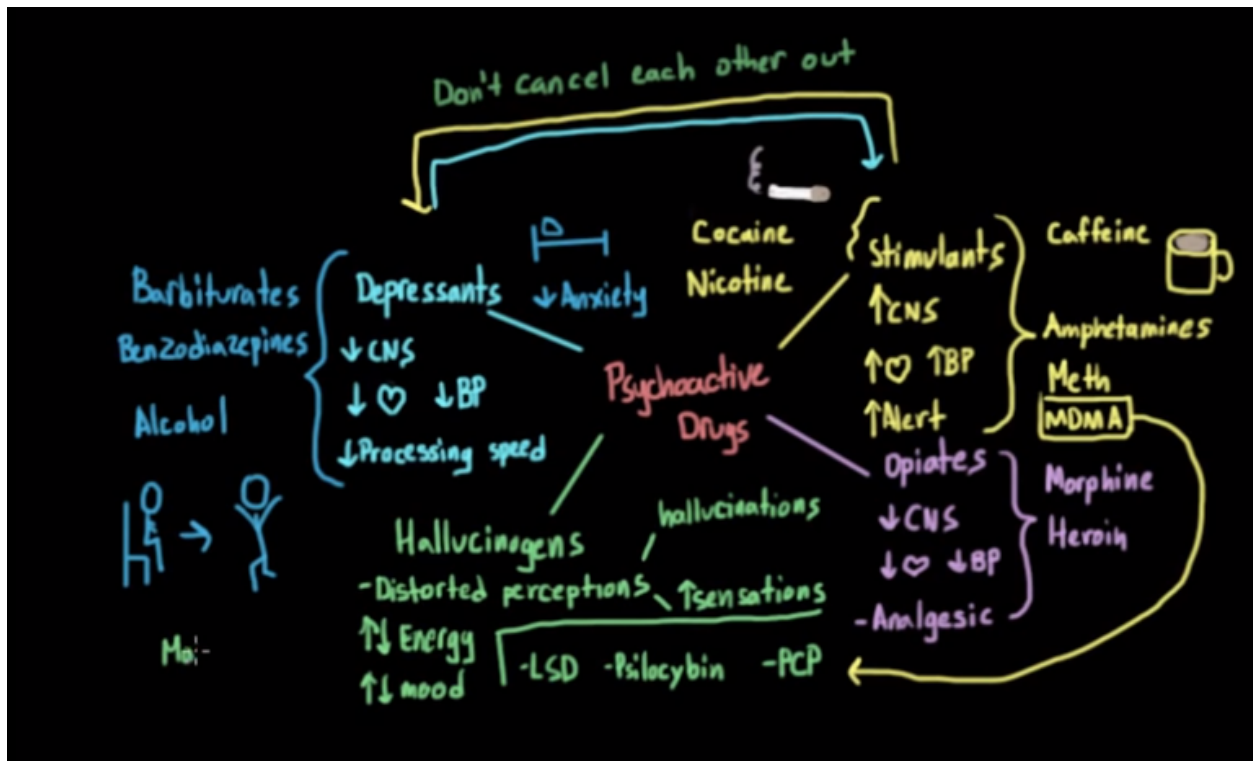 Don't cancel each other out
Barbiturates
Benzodiazepines
Alcohol
Depressants
↓CNS
↓♡ ↓BP
↓Processing speed
↓Anxiety
Cocaine
Nicotine
Stimulants
↑CNS
↑♡ ↑BP
↑Alert
Caffeine
Amphetamines
Meth
MDMA
Psychoactive
Drugs
Opiates
↓CNS
↓♡ ↓BP
-Analgesic
Morphine
Heroin
Hallucinogens
-Distorted perceptions
hallucinations
↑sensations
↑↓Energy
↑↓mood
-LSD -Psilocybin -PCP